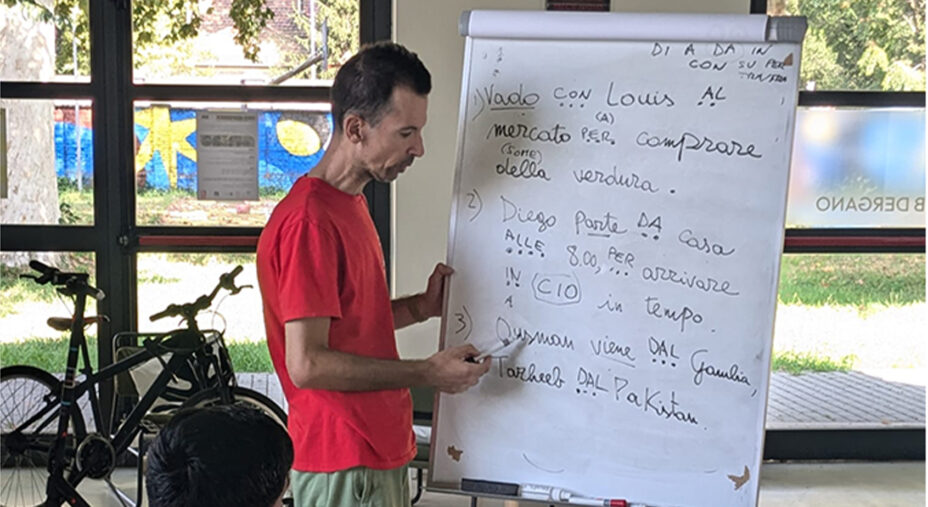 DI A DA IN
CON SU PER
TRA/FRA
1) Vado CON Louis AL
(A)
mercato PER comprare
(SOME)
della verdura.
2) Diego parte DA casa
ALLE 8.00, PER arrivare
IN (CIO) in tempo.
A
3) Ousman viene DAL Gambia,
Tarheeb DAL Pakistan.
B DERGANO